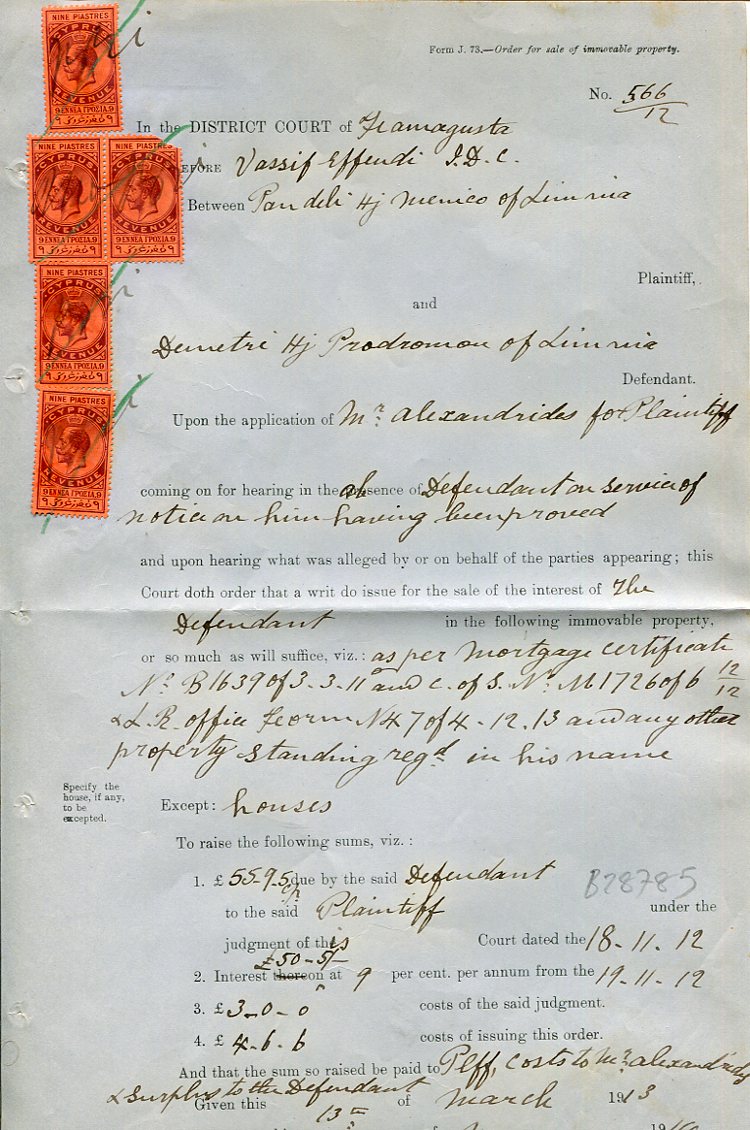 Form J. 73.—Order for sale of immovable property.
No. 566/12
NINE PIASTRES
CYPRUS
REVENUE
9 ΕΝΝΕΑ ΓΡΟΣΙΑ 9
In the DISTRICT COURT of Famagusta
NINE PIASTRES NINE PIASTRES
CYPRUS CYPRUS
REVENUE REVENUE
9 ΕΝΝΕΑ ΓΡΟΣΙΑ 9 9 ΕΝΝΕΑ ΓΡΟΣΙΑ 9
EFORE Vassif Effendi I.D.C.
Between Pandeli Hj Menico of Limnia
Plaintiff,
and
NINE PIASTRES
CYPRUS
REVENUE
9 ΕΝΝΕΑ ΓΡΟΣΙΑ 9
Demetri Hj Prodromou of Limnia
Defendant.
NINE PIASTRES
CYPRUS
REVENUE
9 ΕΝΝΕΑ ΓΡΟΣΙΑ 9
Upon the application of Mr. Alexandrides for Plaintiff
coming on for hearing in the absence of Defendant on service of
notice on him having been proved
and upon hearing what was alleged by or on behalf of the parties appearing; this
Court doth order that a writ do issue for the sale of the interest of The
Defendant in the following immovable property,
or so much as will suffice, viz.: as per Mortgage certificate
No. B1639 of 3-3-11 and C. of S. No. M1726 of 6 12/12
& L.R. office Form N47 of 4-12-13 and any other
property standing regd in his name
Specify the
house, if any,
to be
excepted.
Except: houses
To raise the following sums, viz.:
1. £55.9.5 cp due by the said Defendant
B28785
to the said Plaintiff under the
judgment of this Court dated the 18-11-12
£50-5/-
2. Interest thereon at 9 per cent. per annum from the 19-11-12
3. £3-0-0 costs of the said judgment.
4. £4-6-6 costs of issuing this order.
And that the sum so raised be paid to Plff, costs to Mr. Alexandrides
& surplus to the Defendant
Given this 13th of March 1913